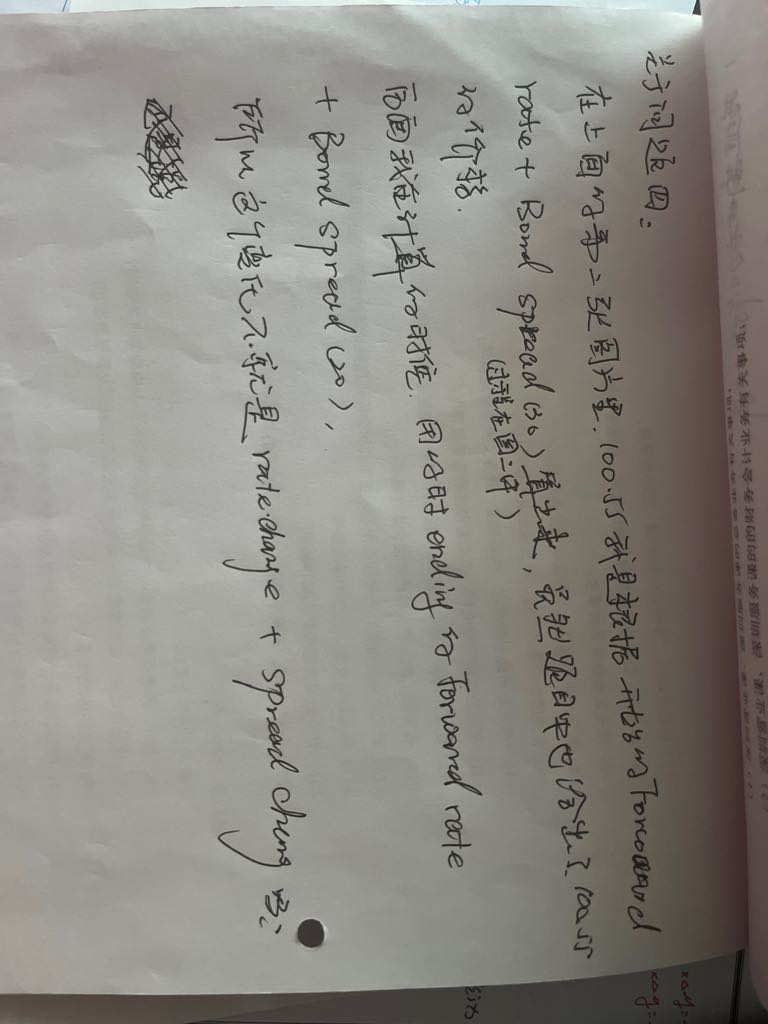 关于问题四：
在上面的第二张图片里，100.55我是根据开始的Forward
rate + Bond spread (30) 算出来，虽然题目中也给出了100.55
(过程在图二中)
的价格.
后面我在计算的时候. 用的时 ending 的 Forward rate
+ Bond spread (20),
所以这个变化不就是 rate change + spread change 吗?